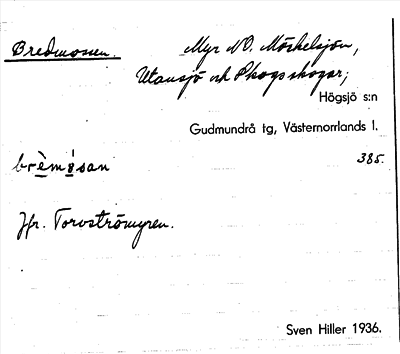 Bredmosen. Myr NO. Mörkelsjön,
Utansjö och Skogs skogar;
Högsjö s:n
Gudmundrå tg, Västernorrlands l.
brèmósan 385.
Jfr. Torvströmyren.
Sven Hiller 1936.